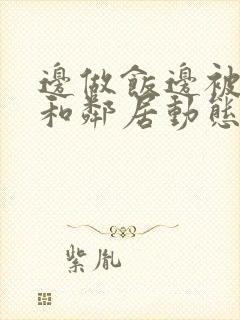 邊做飯邊被
和鄰居動態
紫胤